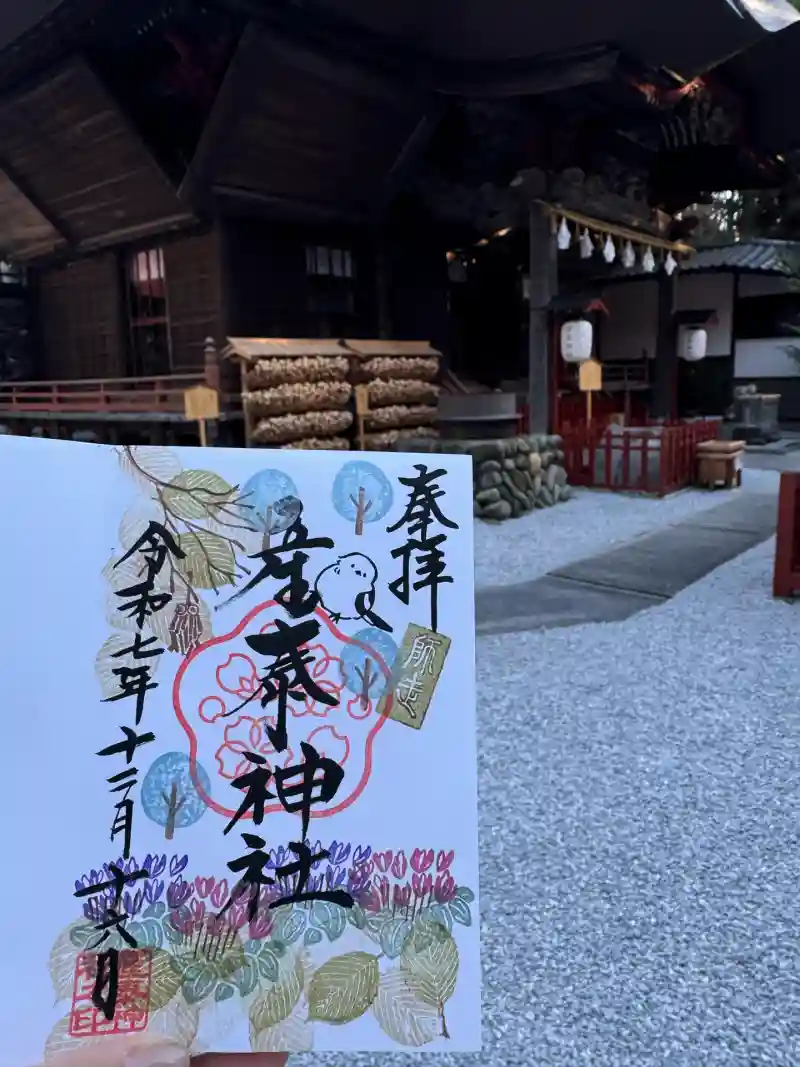 奉拝
師走
産泰神社
令和七年十二月十六日